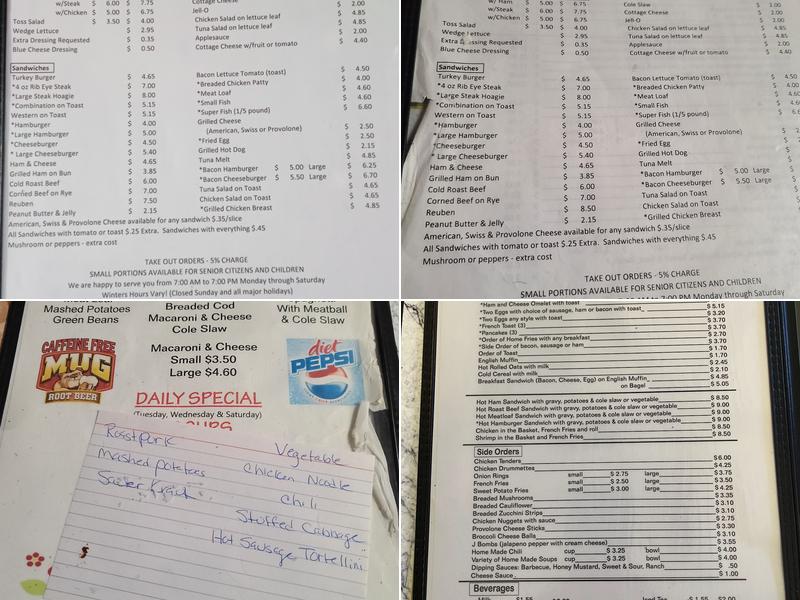 Cottage Cheese
w/Steak $ 6.00 $ 7.75 Jell-O $ 2.00
w/Chicken $ 5.00 $ 6.75 Chicken Salad on lettuce leaf $ 4.85
Toss Salad $ 3.50 $ 4.00 Tuna Salad on lettuce leaf $ 4.85
Wedge Lettuce $ 2.95 Applesauce $ 2.00
Extra Dressing Requested $ 0.35 Cottage Cheese w/fruit or tomato $ 4.40
Blue Cheese Dressing $ 0.50
Sandwiches
Turkey Burger $ 4.65 Bacon Lettuce Tomato (toast) $ 4.50
*4 oz Rib Eye Steak $ 7.00 *Breaded Chicken Patty $ 4.00
*Large Steak Hoagie $ 8.00 *Meat Loaf $ 4.60
*Combination on Toast $ 5.15 *Small Fish $ 4.60
Western on Toast $ 5.15 *Super Fish (1/5 pound) $ 6.60
*Hamburger $ 4.00 Grilled Cheese
*Large Hamburger $ 5.00 (American, Swiss or Provolone) $ 2.50
*Cheeseburger $ 4.50 *Fried Egg $ 2.15
* Large Cheeseburger $ 5.40 Grilled Hot Dog $ 2.15
Ham & Cheese $ 4.65 Tuna Melt $ 4.85
Grilled Ham on Bun $ 3.85 *Bacon Hamburger $ 5.00 Large $ 6.25
Cold Roast Beef $ 6.00 *Bacon Cheeseburger $ 5.50 Large $ 6.70
Corned Beef on Rye $ 7.00 Tuna Salad on Toast $ 4.65
Reuben $ 7.50 Chicken Salad on Toast $ 4.65
Peanut Butter & Jelly $ 2.15 *Grilled Chicken Breast $ 4.85
American, Swiss & Provolone Cheese available for any sandwich $.35/slice
All Sandwiches with tomato or toast $.25 Extra. Sandwiches with everything $.45
Mushroom or peppers - extra cost
TAKE OUT ORDERS - 5% CHARGE
SMALL PORTIONS AVAILABLE FOR SENIOR CITIZENS AND CHILDREN
We are happy to serve you from 7:00 AM to 7:00 PM Monday through Saturday
Winters Hours Vary! (Closed Sunday and all major holidays)
w/ Ham $ 5.00 $ 6.75 Cole Slaw $ 2.00
w/Steak $ 6.00 $ 7.75 Cottage Cheese
w/Chicken $ 5.00 $ 6.75 Jell-O $ 2.00
Toss Salad $ 3.50 $ 4.00 Chicken Salad on lettuce leaf $ 4.85
Wedge Lettuce $ 2.95 Tuna Salad on lettuce leaf $ 4.85
Extra Dressing Requested $ 0.35 Applesauce $ 2.00
Blue Cheese Dressing $ 0.50 Cottage Cheese w/fruit or tomato $ 4.40
Sandwiches
Turkey Burger $ 4.65 Bacon Lettuce Tomato (toast) $ 4.50
*4 oz Rib Eye Steak $ 7.00 *Breaded Chicken Patty $ 4.00
*Large Steak Hoagie $ 8.00 *Meat Loaf $ 4.60
*Combination on Toast $ 5.15 *Small Fish $ 4.60
Western on Toast $ 5.15 *Super Fish (1/5 pound) $
*Hamburger $ 4.00 Grilled Cheese
*Large Hamburger $ 5.00 (American, Swiss or Provolone) $
*Cheeseburger $ 4.50 *Fried Egg $
* Large Cheeseburger $ 5.40 Grilled Hot Dog $
Ham & Cheese $ 4.65 Tuna Melt $
Grilled Ham on Bun $ 3.85 *Bacon Hamburger $ 5.00 Large $
Cold Roast Beef $ 6.00 *Bacon Cheeseburger $ 5.50 Large $
Corned Beef on Rye $ 7.00 Tuna Salad on Toast
Reuben $ 8.50 Chicken Salad on Toast
Peanut Butter & Jelly $ 2.15 *Grilled Chicken Breast
American, Swiss & Provolone Cheese available for any sandwich $.35/slice
All Sandwiches with tomato or toast $.25 Extra. Sandwiches with everything $.45
Mushroom or peppers - extra cost
TAKE OUT ORDERS - 5% CHARGE
SMALL PORTIONS AVAILABLE FOR SENIOR CITIZENS AND CHILDREN
7:00 PM Monday through Saturday
Mashed Potatoes
Green Beans
Breaded Cod
Macaroni & Cheese
Cole Slaw
With Meatball
& Cole Slaw
Macaroni & Cheese
Small $3.50
Large $4.60
CAFFEINE FREE
MUG
ROOT BEER
diet
PEPSI
DAILY SPECIAL
(Tuesday, Wednesday & Saturday)
Roast pork
Mashed potatoes
Sauer Kraut
Vegetable
Chicken Noodle
Chili
Stuffed Cabbage
Hot Sausage Tortellini
*Ham and Cheese Omelet with toast $ 5.15
*Two Eggs with choice of sausage, ham or bacon with toast $ 5.15
*Two Eggs any style with toast $ 3.20
*French Toast (3) $ 3.70
*Pancakes (3) $ 3.70
*Order of Home Fries with any breakfast $ 2.70
*Side Order of bacon, sausage or ham $ 3.70
Order of Toast $ 1.70
English Muffin $ 1.70
Hot Rolled Oats with milk $ 2.45
Cold Cereal with milk $ 2.10
Breakfast Sandwich (Bacon, Cheese, Egg) on English Muffin $ 4.85
on Bagel $ 5.05
Hot Ham Sandwich with gravy, potatoes & cole slaw or vegetable $ 8.50
Hot Roast Beef Sandwich with gravy, potatoes & cole slaw or vegetable $ 9.00
Hot Meatloaf Sandwich with gravy, potatoes & cole slaw or vegetable $ 9.00
*Hot Hamburger Sandwich with gravy, potatoes & cole slaw or vegetable $ 9.00
Chicken in the Basket, French Fries and roll $ 8.50
Shrimp in the Basket and French Fries $ 8.50
Side Orders
Chicken Tenders $6.00
Chicken Drummettes $4.25
Onion Rings small $ 2.75 large $ 3.75
French Fries small $ 2.50 large $ 3.50
Sweet Potato Fries small $ 3.00 large $ 4.25
Breaded Mushrooms $ 3.35
Breaded Cauliflower $ 3.10
Breaded Zucchini Strips $ 3.10
Chicken Nuggets with sauce $ 2.75
Provolone Cheese Sticks $ 3.30
Broccoli Cheese Balls $ 3.10
J Bombs (jalapeno pepper with cream cheese) $ 3.55
Home Made Chili cup $ 3.25 bowl $ 4.00
Variety of Home Made Soups cup $ 3.25 bowl $ 4.00
Dipping Sauces: Barbecue, Honey Mustard, Sweet & Sour, Ranch $ .50
Cheese Sauce $ 1.00
Beverages